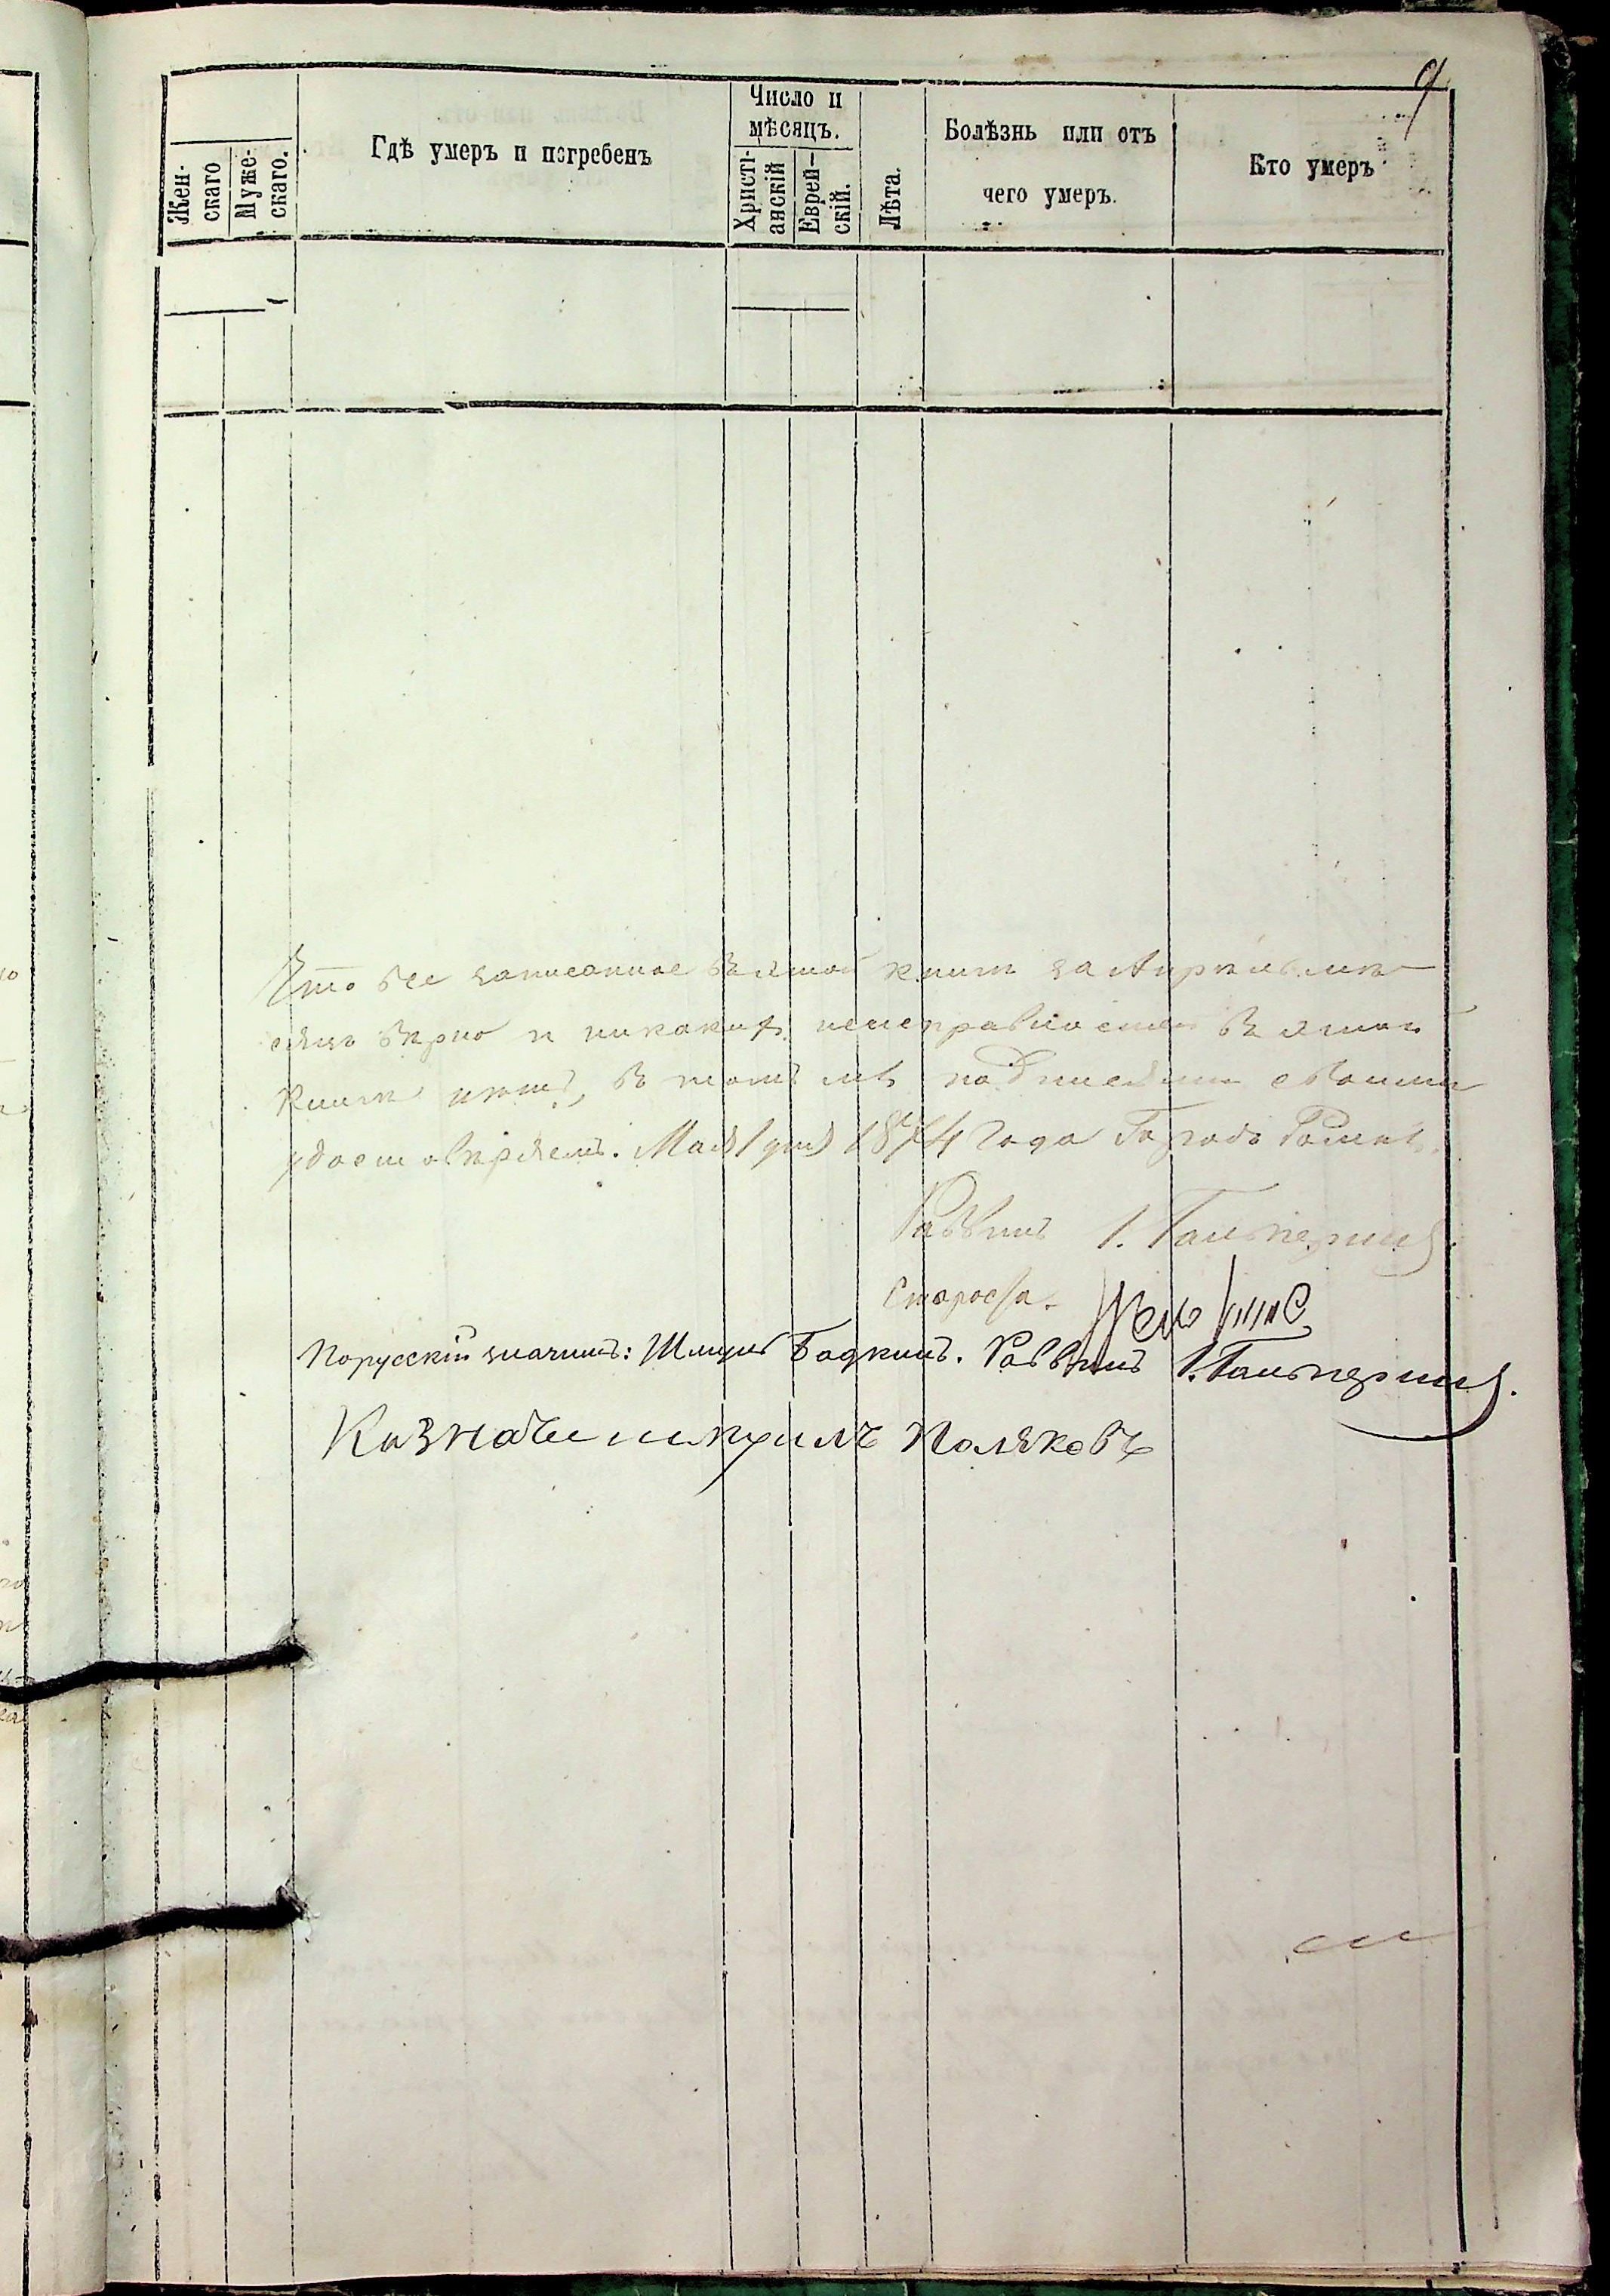 9
Жен-
скаго
Муже-
скаго.
Гдѣ умеръ и погребенъ
Число и
мѣсяцъ.
Христі-
анскій
Еврей-
скій.
Лѣта.
Болѣзнь или отъ
чего умеръ.
Кто умеръ
Что все записанное въ этой книгѣ за Апрѣль мѣ-
сяцъ вѣрно и никакихъ неисправностей въ этой
книгѣ нѣтъ, въ томъ мы подписями своими
удостовѣряемъ. Мая 1 дня 1874 года Городъ
Раввинъ І. Гальперинъ.
Староста.
Порусскій значитъ: Раввинъ І. Гальперинъ.
Казначей Поляковъ